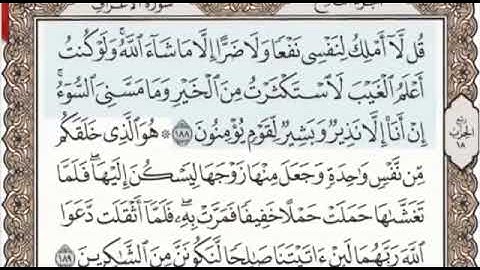 سورة الأعراف
الجزء التاسع
قُل لَّآ أَمْلِكُ لِنَفْسِى نَفْعًا وَلَا ضَرًّا إِلَّا مَا شَآءَ ٱللَّهُ ۚ وَلَوْ كُنتُ
أَعْلَمُ ٱلْغَيْبَ لَٱسْتَكْثَرْتُ مِنَ ٱلْخَيْرِ وَمَا مَسَّنِىَ ٱلسُّوٓءُ ۚ
إِنْ أَنَا۠ إِلَّا نَذِيرٌ وَبَشِيرٌ لِّقَوْمٍ يُؤْمِنُونَ ١٨٨ هُوَ ٱلَّذِى خَلَقَكُم
مِّن نَّفْسٍ وَٰحِدَةٍ وَجَعَلَ مِنْهَا زَوْجَهَا لِيَسْكُنَ إِلَيْهَا ۖ فَلَمَّا
تَغَشَّىٰهَا حَمَلَتْ حَمْلًا خَفِيفًا فَمَرَّتْ بِهِۦ ۖ فَلَمَّآ أَثْقَلَت دَّعَوَا
ٱللَّهَ رَبَّهُمَا لَئِنْ ءَاتَيْتَنَا صَٰلِحًا لَّنَكُونَنَّ مِنَ ٱلشَّٰكِرِينَ ١٨٩
ربع
الحزب
١٨